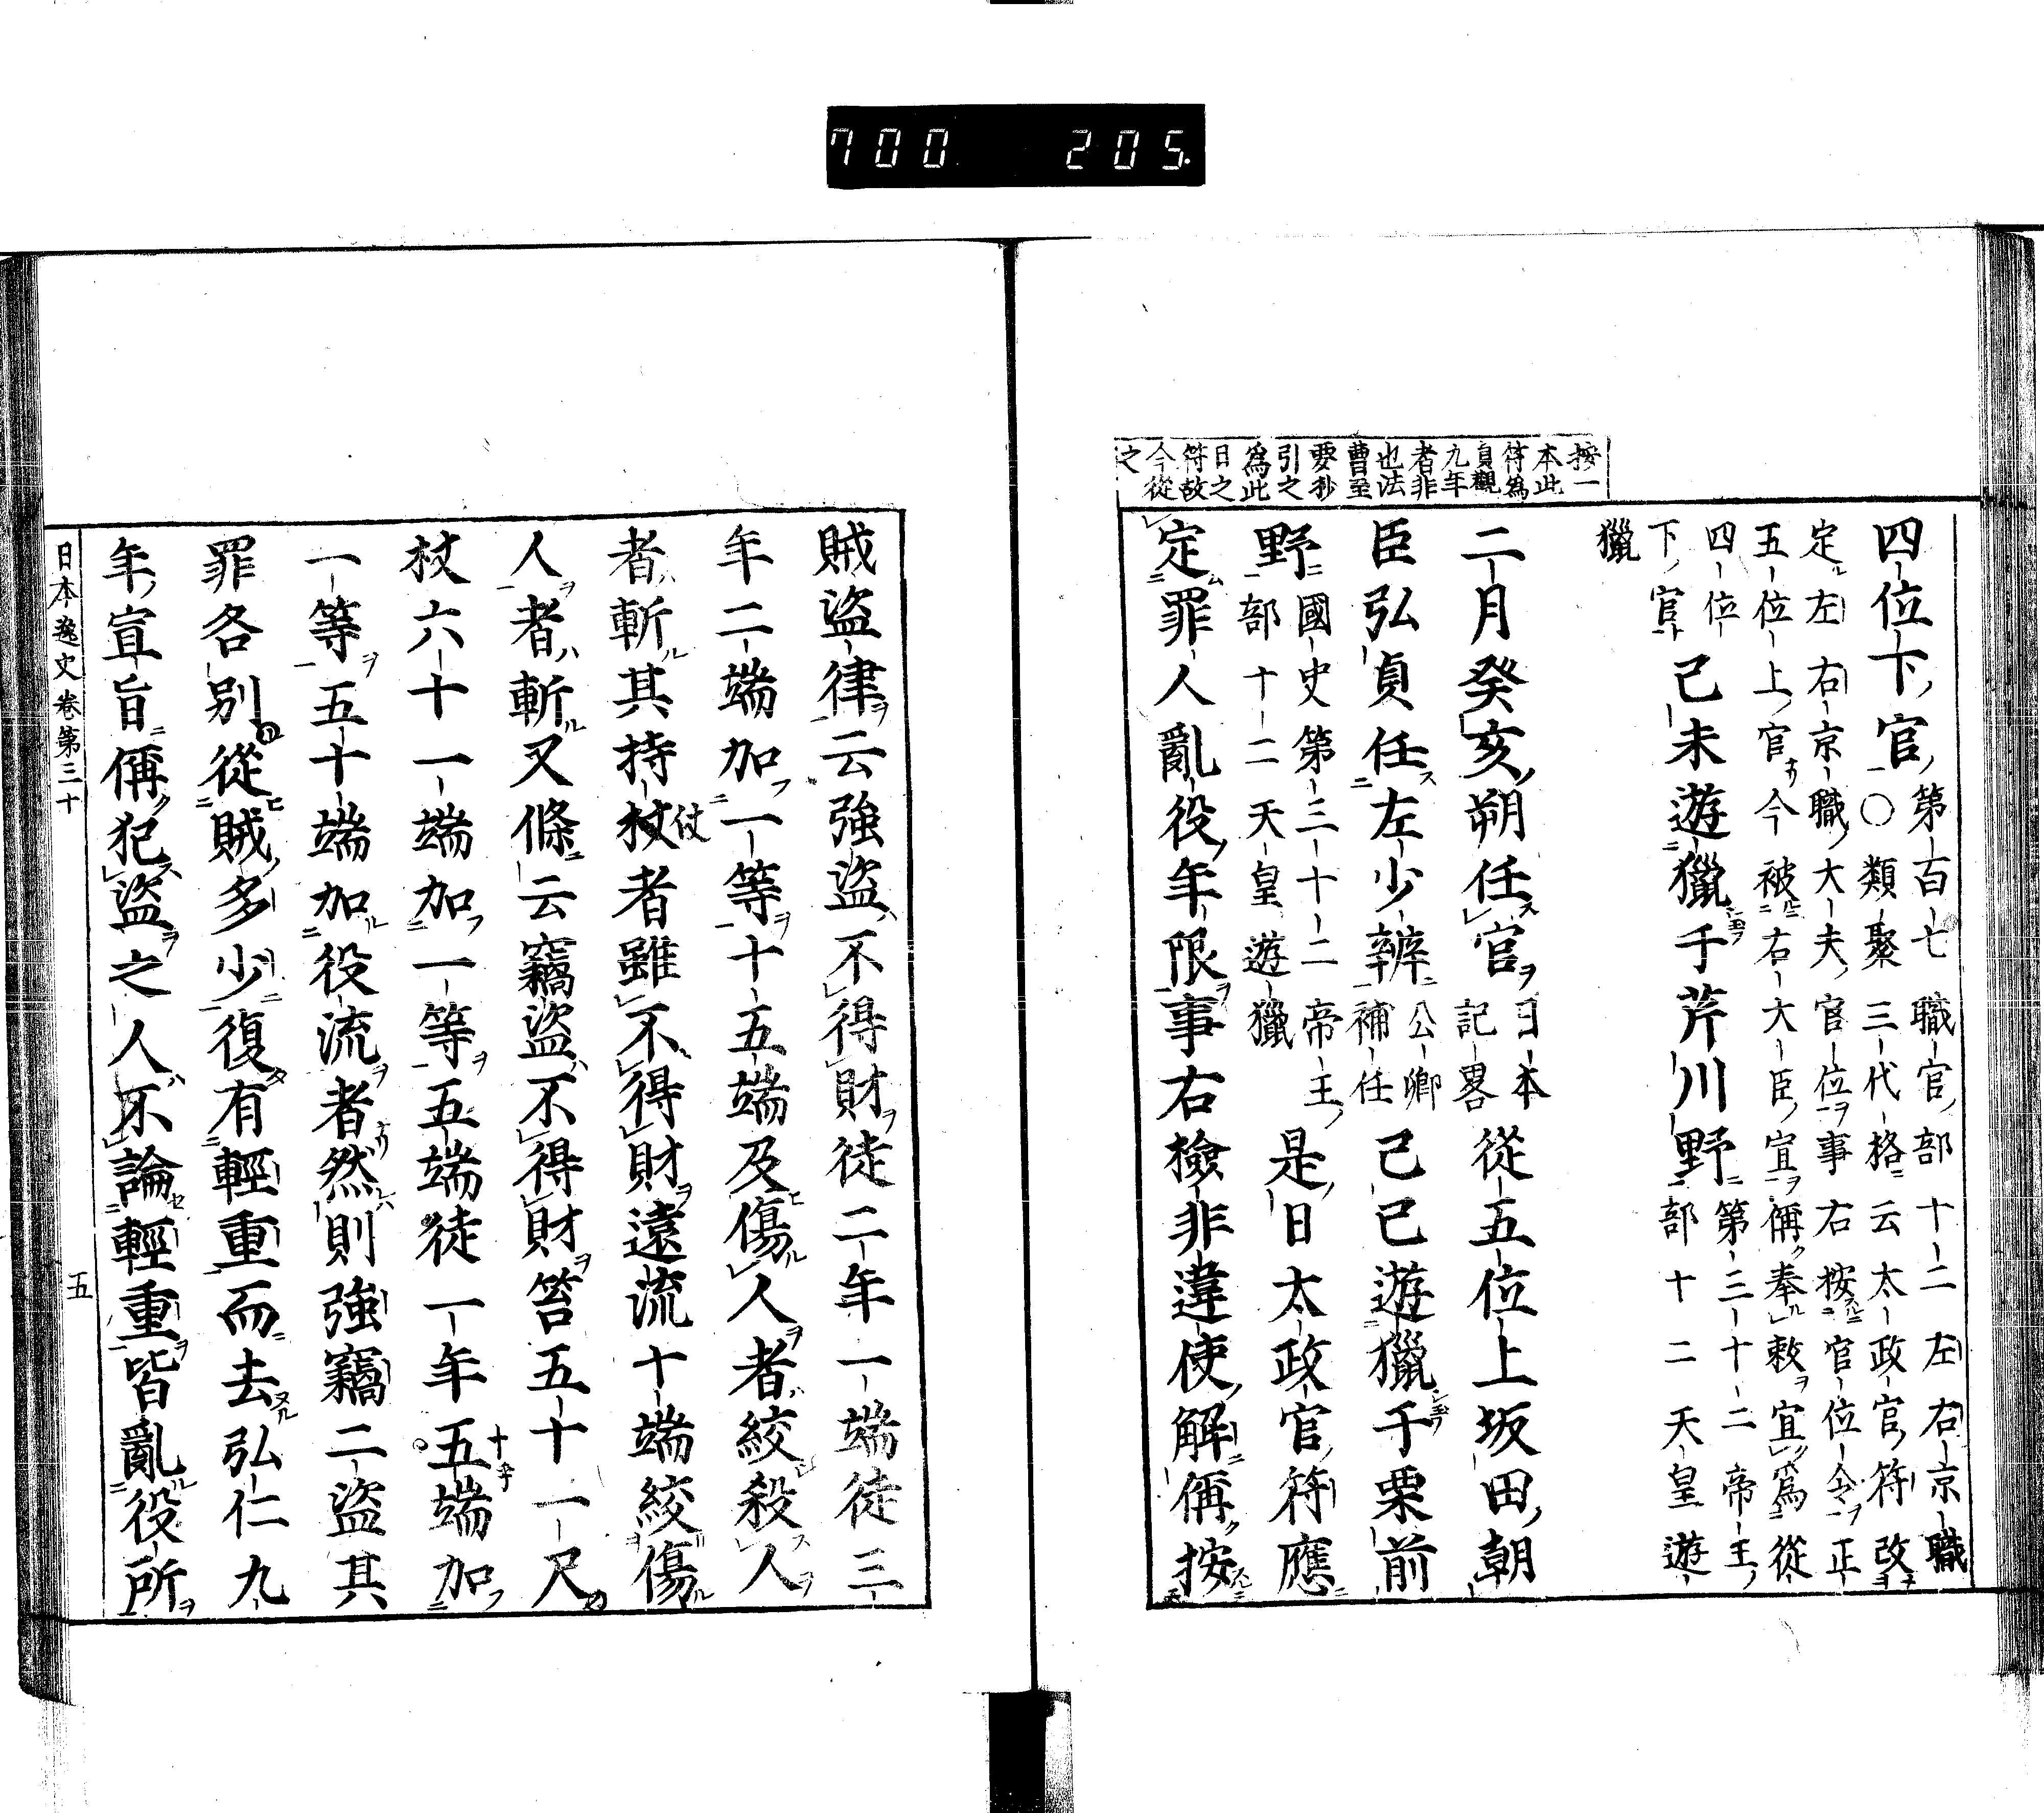 700 205
按一
本此
符為
貞觀
九年
者非
也法
曹至
要抄
引之
為此
日之
符故
今從
之
四位下官第百七職官部十二左右京職
○類聚三代格云太政官符改
定左右京職大夫官位事右按官位令正
五位上官今被右大臣宣偁奉敕宜為從
四位
下官己未遊獵于芹川野第三十二帝王
部十二天皇遊
獵
二月癸亥朔任官日本
記畧從五位上坂田朝
臣弘貞任左少辨公卿
補任己巳遊獵于栗前
野國史第三十二帝王
部十二天皇遊獵是日太政官符應
定罪人亂役年限事右檢非違使解偁按
賊盜律云強盜不得財徒二年一端徒三
年二端加一等十五端及傷人者絞殺人
者斬其持杖者雖不得財遠流十端絞傷
仗
人者斬又條云竊盜不得財笞五十一尺
杖六十一端加一等五端徒一年五端加
一等五十端加役流者然則強竊二盜其
罪各別從賊多少復有輕重而去弘仁九
年宣旨偁犯盜之人不論輕重皆亂役所
日本逸史卷第三十 五